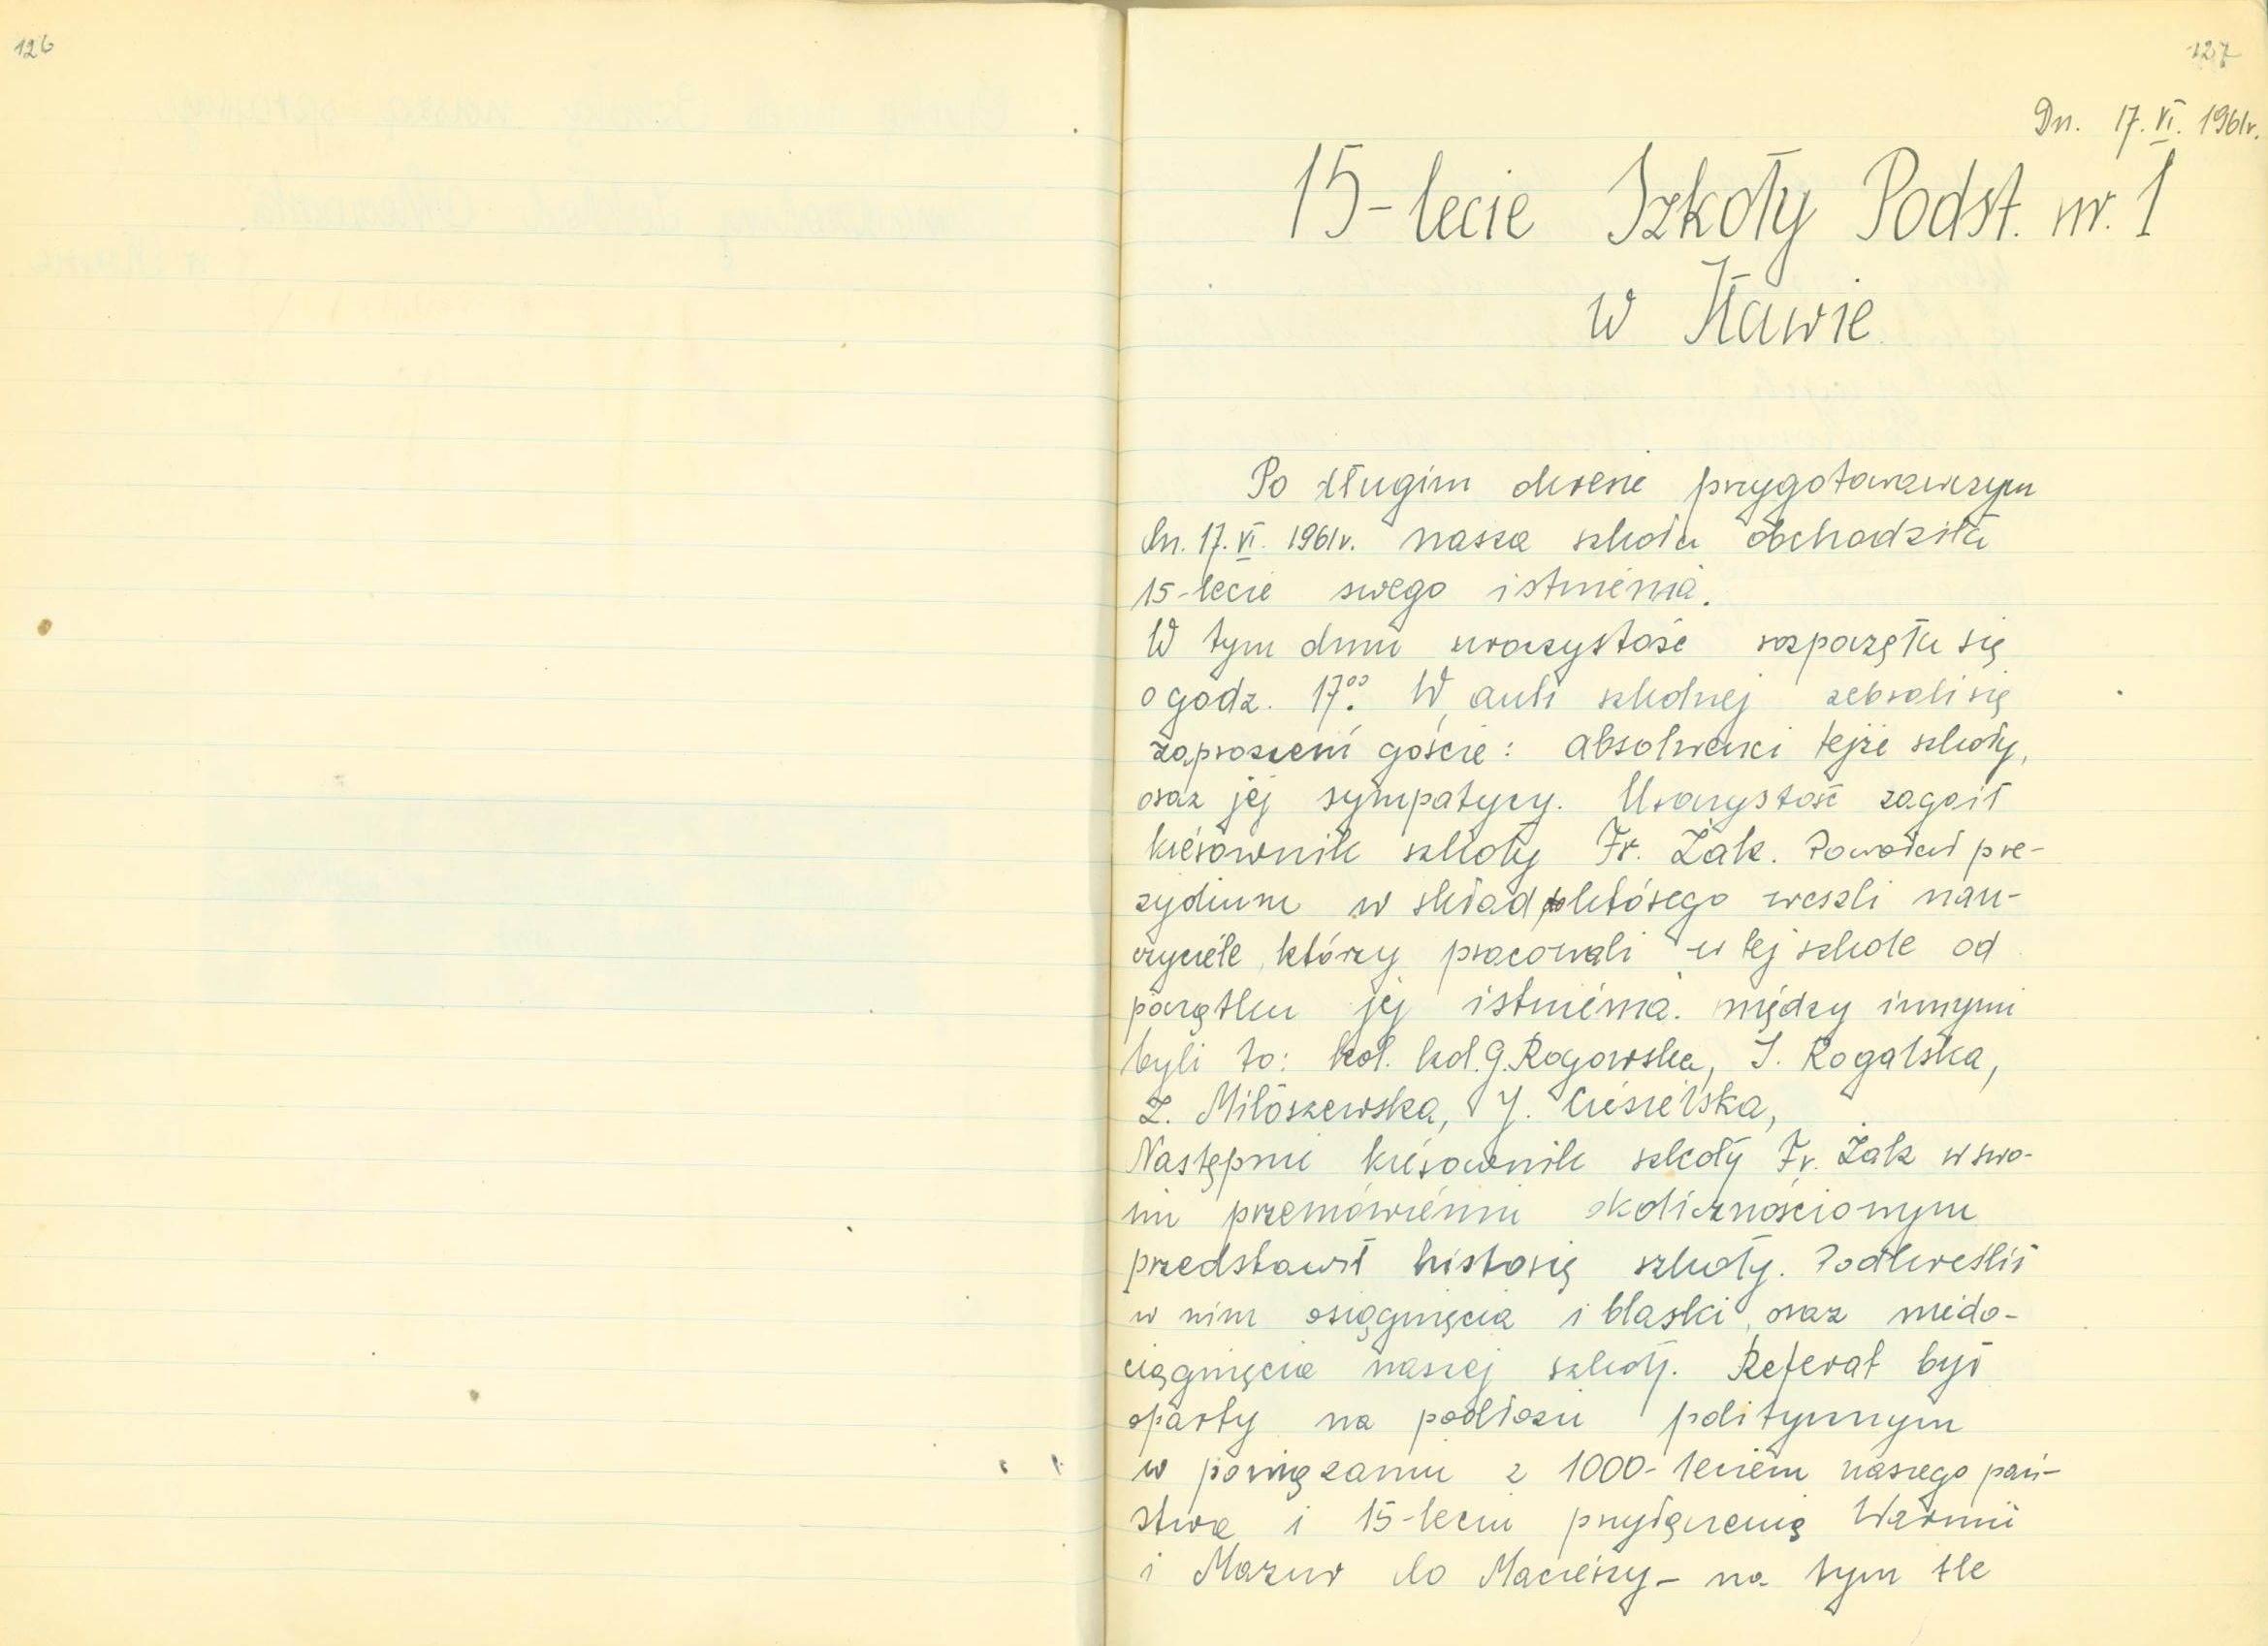 126
127
Dn. 17. VI. 1961r.
15-lecie Szkoły Podst. nr. 1
w Iławie
Po długim okresie przygotowawczym
dn. 17. VI. 1961r. nasza szkoła obchodziła
15-lecie swego istnienia.
W tym dniu uroczystość rozpoczęła się
o godz. 17⁰⁰. W auli szkolnej zebrali się
zaproszeni goście: absolwenci tejże szkoły,
oraz jej sympatycy. Uroczystość zagaił
kierownik szkoły Fr. Żak. Powołał pre-
zydium w skład którego weszli nau-
czyciele, którzy pracowali w tej szkole od
początku jej istnienia. między innymi
byli to: kol. kol. G. Rogowska, J. Rogalska,
Z. Miłoszewska, J. Ciesielska,
Następnie kierownik szkoły Fr. Żak w swo-
im przemówieniu okolicznościowym
przedstawił historię szkoły. Podkreślił
w nim osiągnięcia i blaski, oraz niedo-
ciągnięcia naszej szkoły. Referat był
oparty na podłożu politycznym
w powiązaniu z 1000-leciem naszego pań-
stwa i 15-leciu przyłączenia Warmii
i Mazur do Macierzy – na tym tle